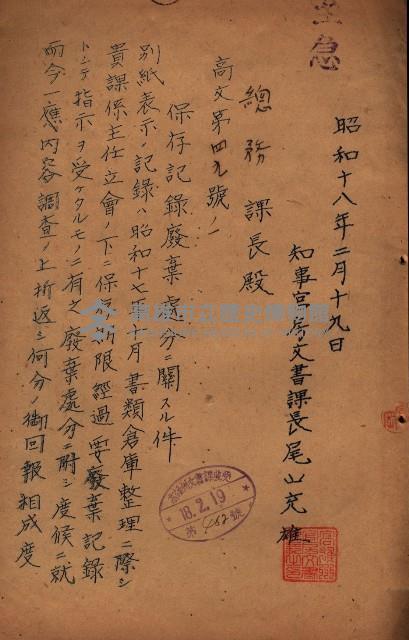 至急
昭和十八年二月十九日
知事官房文書課長尾山充雄
總務課長殿
高文第四九號ノ一
保存記録廢棄處分ニ關スル件
別紙表示ノ記録ハ昭和十七年十月書類倉庫整理ニ際シ
貴課係主任立會ノ下ニ保存期限經過要廢棄記録
トシテ指示ヲ受ケタルモノニ有之廢棄處分ニ附シ度候ニ就
而今一應内容調査ノ上折返シ何分ノ御回報相成度
18.2.19
第 號